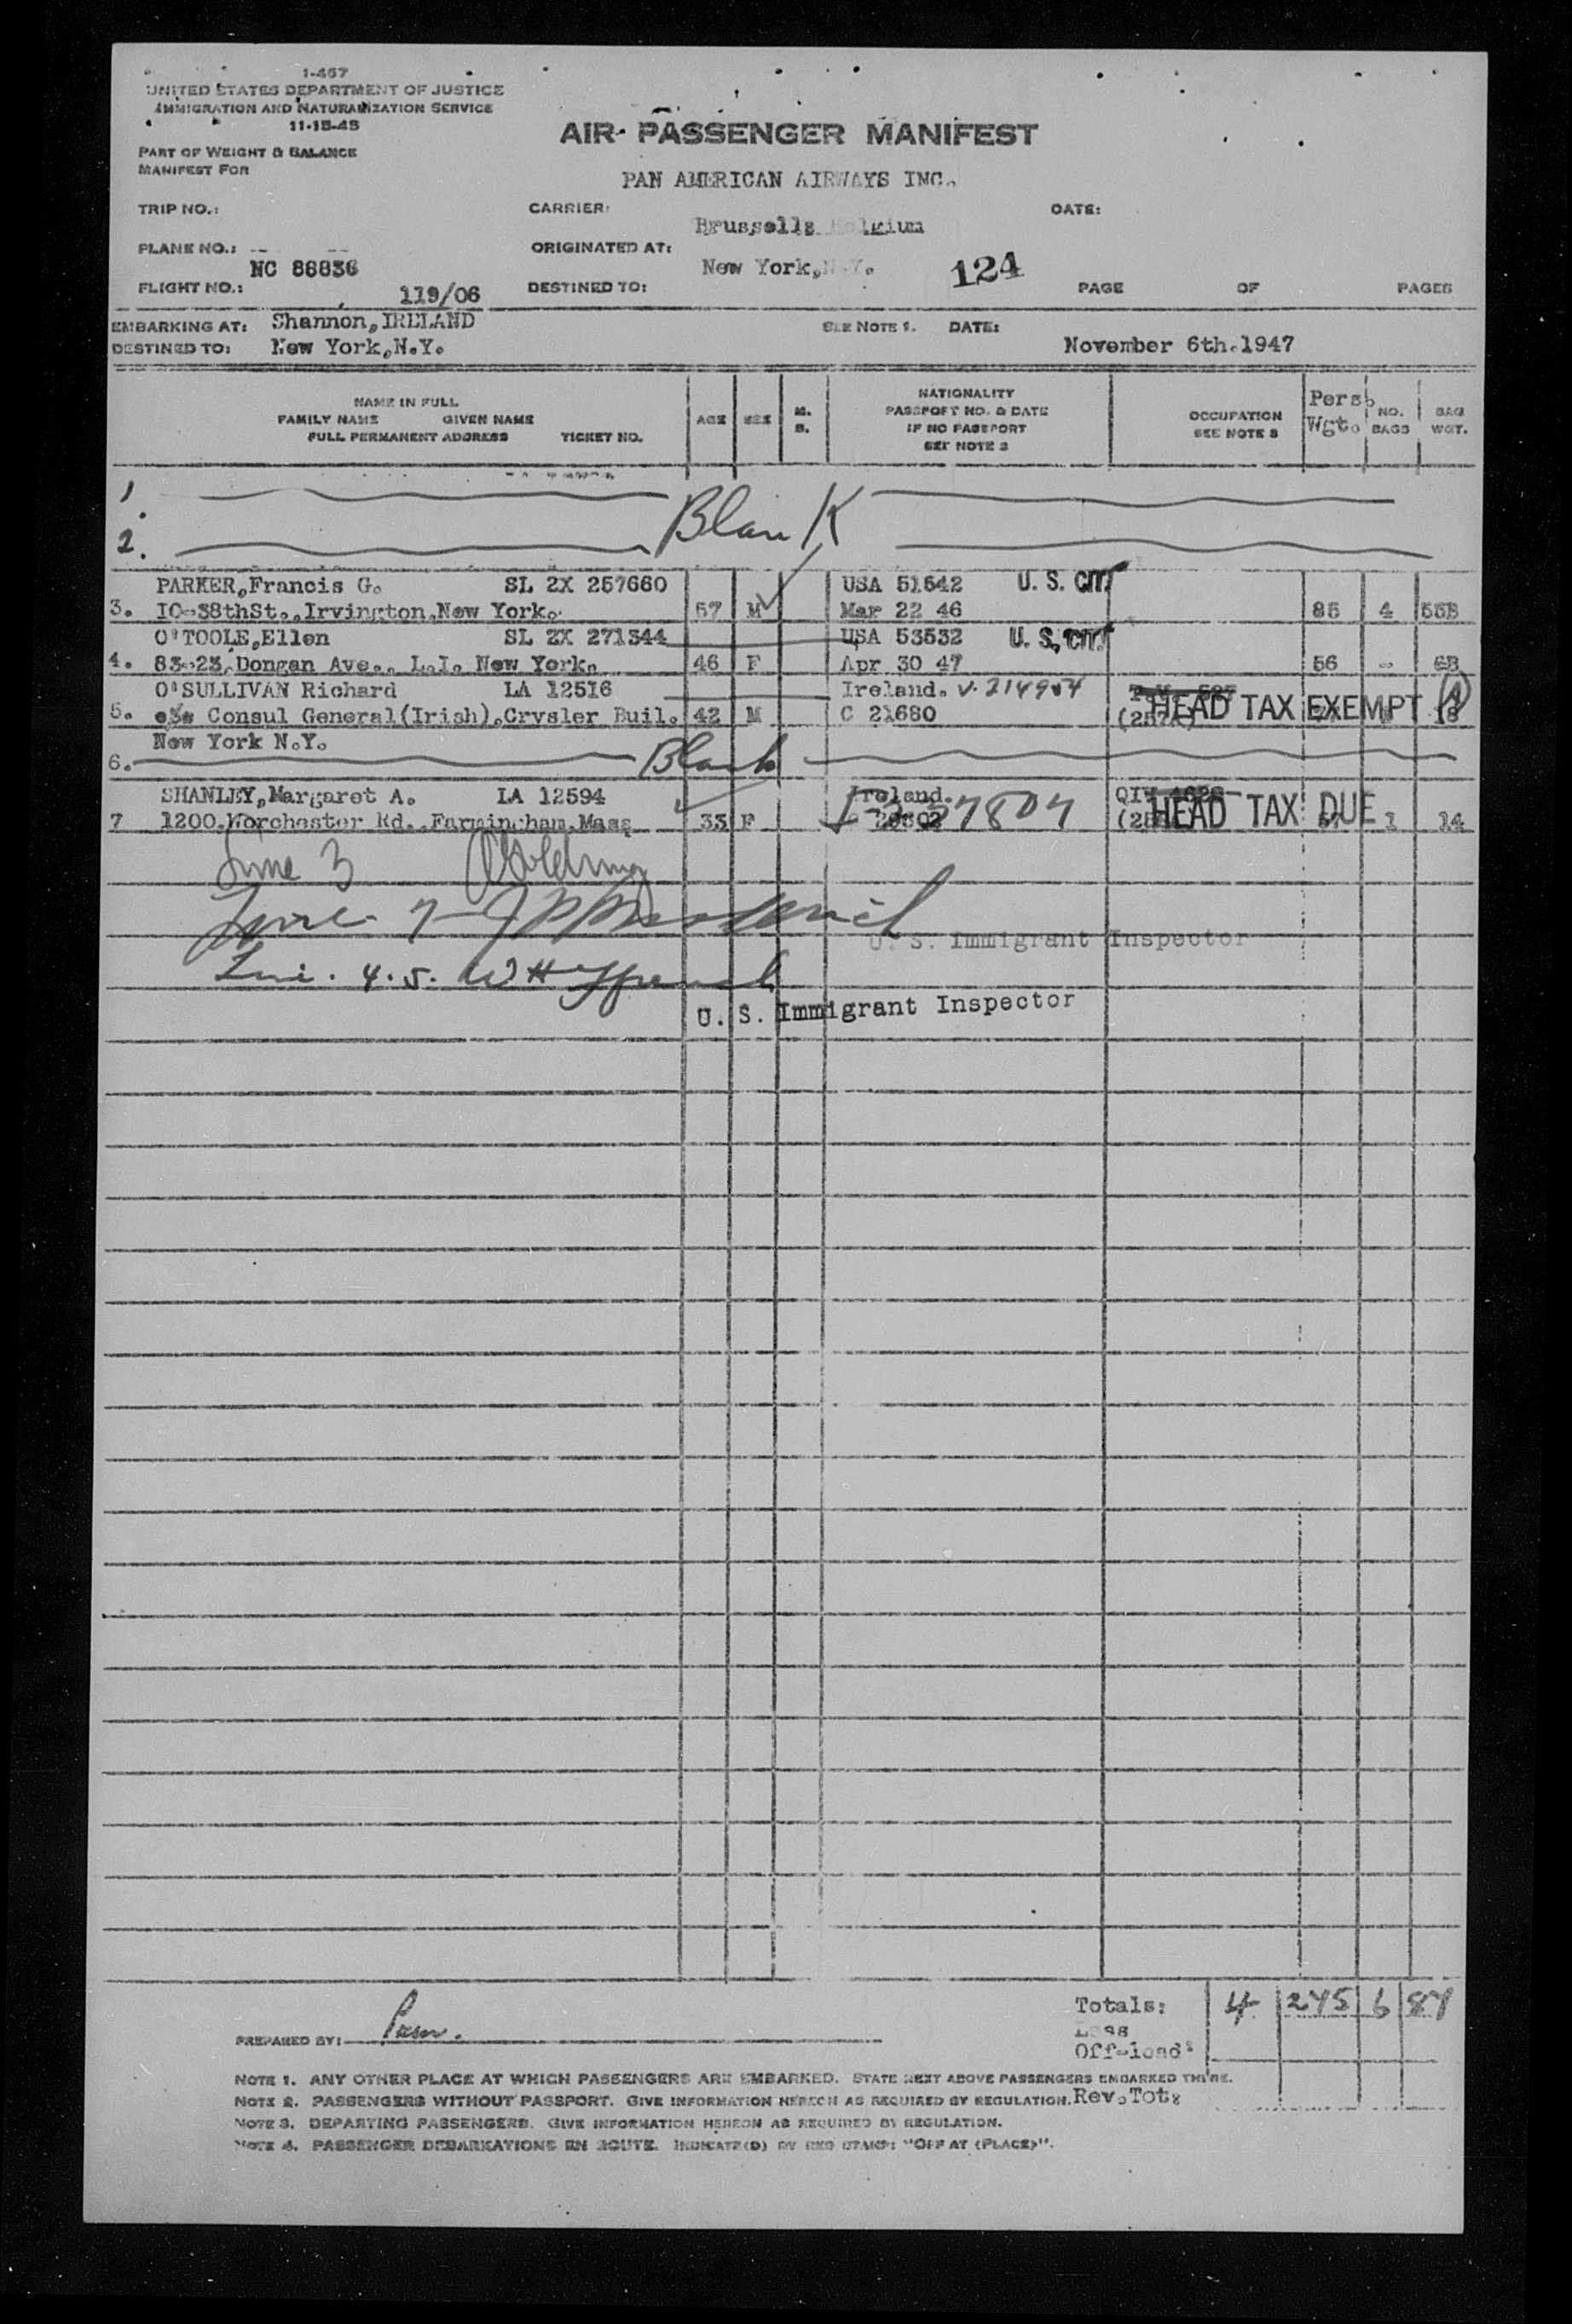 1-467
UNITED STATES DEPARTMENT OF JUSTICE
IMMIGRATION AND NATURALIZATION SERVICE
11-15-45
AIR PASSENGER MANIFEST
PART OF WEIGHT & BALANCE
MANIFEST FOR
PAN AMERICAN AIRWAYS INC.
TRIP NO.: CARRIER: DATE:
Brussells Belgium
PLANE NO.: ORIGINATED AT:
NC 88836 New York, N.Y. 124
FLIGHT NO.: 119/06 DESTINED TO: PAGE OF PAGES
EMBARKING AT: Shannon, IRELAND SEE NOTE 1. DATE:
DESTINED TO: New York, N.Y. November 6th. 1947
NAME IN FULL
FAMILY NAME GIVEN NAME
FULL PERMANENT ADDRESS TICKET NO.
AGE SEX M. S.
NATIONALITY
PASSPORT NO. & DATE
IF NO PASSPORT
SEE NOTE 2
OCCUPATION
SEE NOTE 3
Pers.
Wgt. NO. BAGS BAG WGT.
1.
Blank
2.
PARKER, Francis G. SL 2X 257660 USA 51642 U. S. CIT
3. 10-38thSt., Irvington, New York. 57 M Mar 22 46 85 4
O'TOOLE, Ellen SL 2X 271344 USA 53532 U. S. CIT
4. 83-23, Dongan Ave., L.I. New York. 46 F Apr 30 47 56 -
O'SULLIVAN Richard LA 12516 Ireland. V. 214954
HEAD TAX EXEMPT
5. Consul General (Irish), Crysler Buil. 42 M C 21680
New York N.Y.
6. Blank
SHANLEY, Margaret A. LA 12594 Ireland.
HEAD TAX DUE
7 1200. Worchester Rd., Farmingham, Mass 33 F 1 14
Line 3
Line 7
U. S. Immigrant Inspector
Line. 4. 5.
U. S. Immigrant Inspector
Totals: 4 245 6 87
Less
Off-load:
PREPARED BY:
NOTE 1. ANY OTHER PLACE AT WHICH PASSENGERS ARE EMBARKED. STATE NEXT ABOVE PASSENGERS EMBARKED THERE.
NOTE 2. PASSENGERS WITHOUT PASSPORT. GIVE INFORMATION HEREON AS REQUIRED BY REGULATION. Rev. Tot:
NOTE 3. DEPARTING PASSENGERS. GIVE INFORMATION HEREON AS REQUIRED BY REGULATION.
NOTE 4. PASSENGER DEBARKATIONS EN ROUTE. INDICATE(D) BY RED STAMP: "OFF AT (PLACE)".